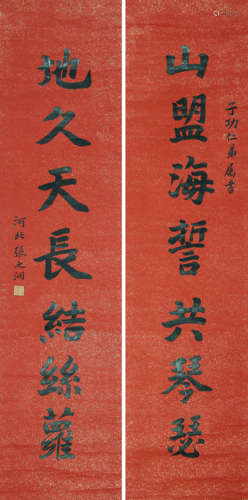 子功仁弟属書
山盟海誓共琴瑟
地久天長結絲蘿
河北張之洞